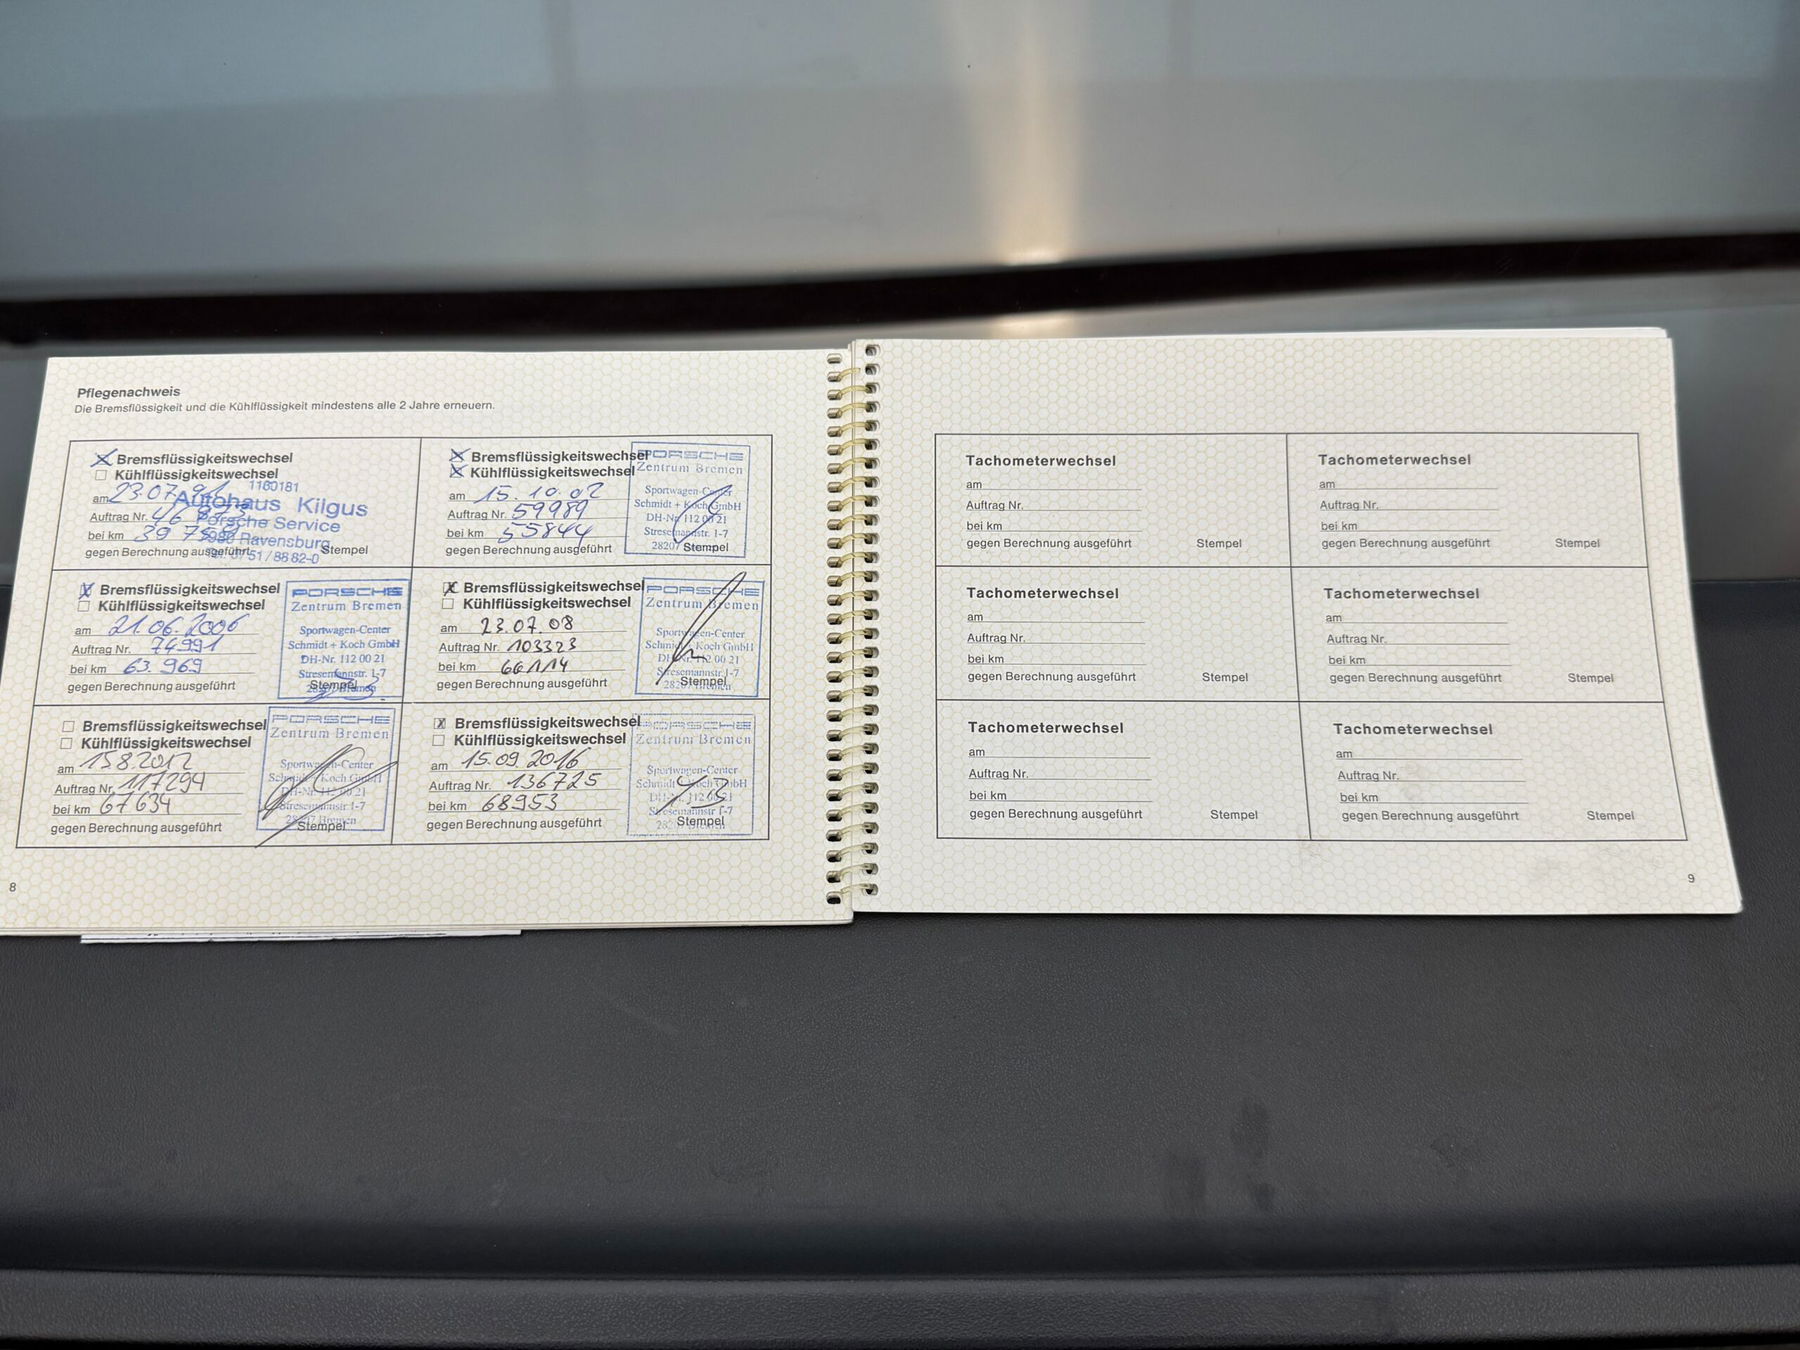 Pflegenachweis
Die Bremsflüssigkeit und die Kühlflüssigkeit mindestens alle 2 Jahre erneuern.
Bremsflüssigkeitswechsel
Kühlflüssigkeitswechsel
am 23.07.91
Auftrag Nr.
bei km
gegen Berechnung ausgeführt
Stempel
1160181
Autohaus Kilgus
Porsche Service
Ravensburg
0751/8882-0
Bremsflüssigkeitswechsel
Kühlflüssigkeitswechsel
am 15.10.02
Auftrag Nr. 59989
bei km 55844
gegen Berechnung ausgeführt
Stempel
PORSCHE
Zentrum Bremen
Sportwagen-Center
Schmidt + Koch GmbH
DH-Nr. 112 00 21
Stresemannstr. 1-7
28207
Bremsflüssigkeitswechsel
Kühlflüssigkeitswechsel
am 21.06.2006
Auftrag Nr. 74991
bei km 63.969
gegen Berechnung ausgeführt
Stempel
PORSCHE
Zentrum Bremen
Sportwagen-Center
Schmidt + Koch GmbH
DH-Nr. 112 00 21
Stresemannstr. 1-7
28207 Bremen
Bremsflüssigkeitswechsel
Kühlflüssigkeitswechsel
am 23.07.08
Auftrag Nr. 103323
bei km 66114
gegen Berechnung ausgeführt
Stempel
PORSCHE
Zentrum Bremen
Sportwagen-Center
Schmidt + Koch GmbH
DH-Nr. 112 00 21
Stresemannstr. 1-7
28207 Bremen
Bremsflüssigkeitswechsel
Kühlflüssigkeitswechsel
am 15.8.2012
Auftrag Nr. 117294
bei km 67634
gegen Berechnung ausgeführt
Stempel
PORSCHE
Zentrum Bremen
Sportwagen-Center
Schmidt + Koch GmbH
DH-Nr. 112 00 21
Stresemannstr. 1-7
28207 Bremen
Bremsflüssigkeitswechsel
Kühlflüssigkeitswechsel
am 15.09.2016
Auftrag Nr. 136725
bei km 68953
gegen Berechnung ausgeführt
Stempel
PORSCHE
Zentrum Bremen
Sportwagen-Center
Schmidt + Koch GmbH
DH-Nr. 112 00 21
Stresemannstr. 1-7
8
Tachometerwechsel
am
Auftrag Nr.
bei km
gegen Berechnung ausgeführt
Stempel
Tachometerwechsel
am
Auftrag Nr.
bei km
gegen Berechnung ausgeführt
Stempel
Tachometerwechsel
am
Auftrag Nr.
bei km
gegen Berechnung ausgeführt
Stempel
Tachometerwechsel
am
Auftrag Nr.
bei km
gegen Berechnung ausgeführt
Stempel
Tachometerwechsel
am
Auftrag Nr.
bei km
gegen Berechnung ausgeführt
Stempel
Tachometerwechsel
am
Auftrag Nr.
bei km
gegen Berechnung ausgeführt
Stempel
9